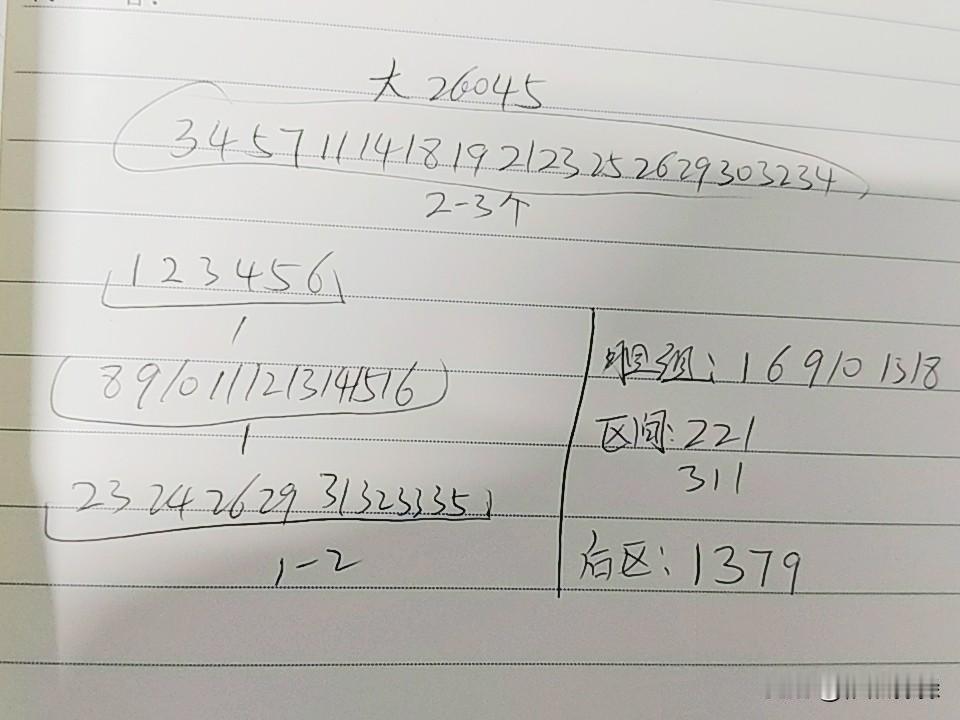 大 26045
3 4 5 7 11 14 18 19 21 23 25 26 29 30 32 34
2-3个
1 2 3 4 5 6
1
8 9 10 11 12 13 14 15 16
1
23 24 26 29 31 32 33 35
1-2
胆组: 1 6 9 10 13 18
区间: 221
311
后区: 1379